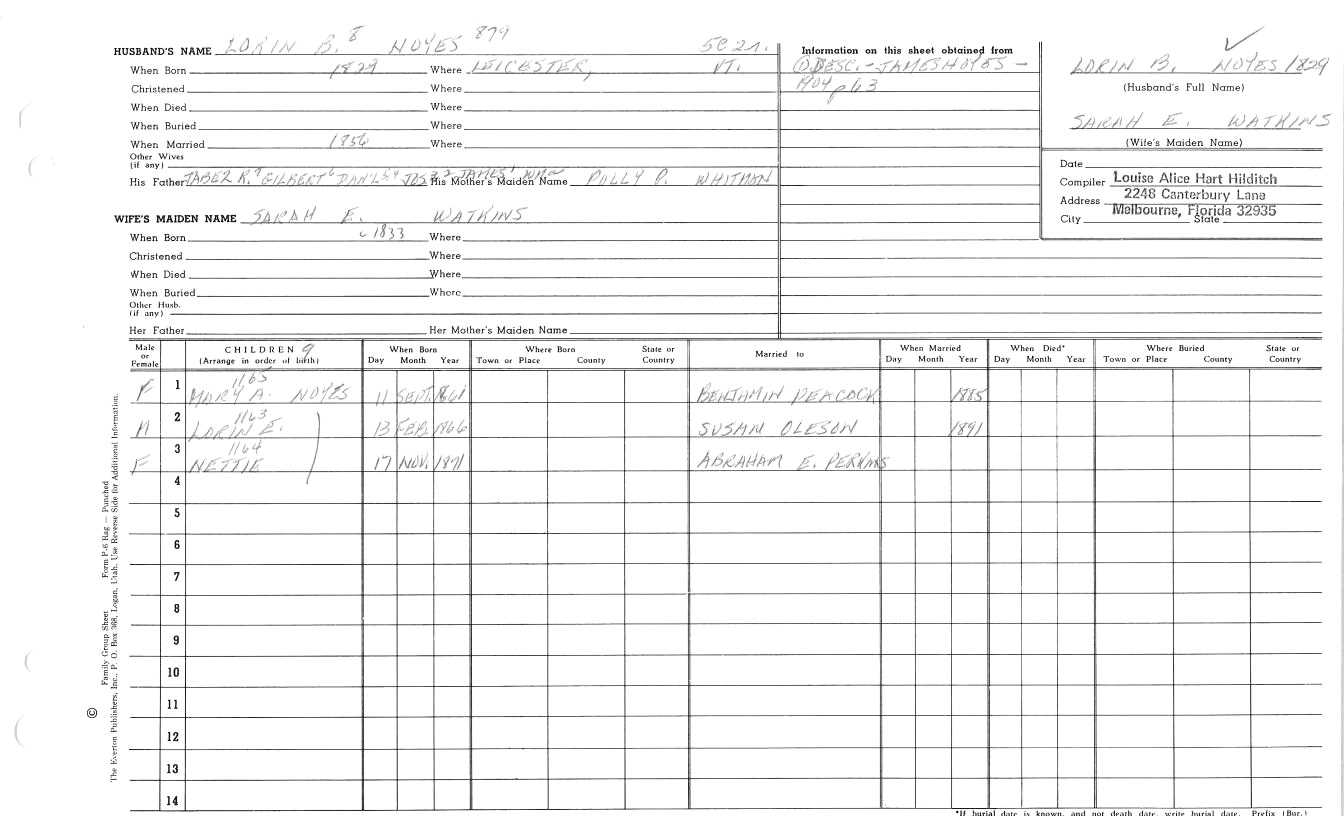 HUSBAND'S NAME LORIN B. 8 NOYES 879 5C21.
When Born 1829 Where LEICESTER, VT.
Christened Where
When Died Where
When Buried Where
When Married 1856 Where
Other Wives
(if any)
His Father JABEZ R.7 GILBERT6 DAN'L5,4 JOS3 JAMES His Mother's Maiden Name POLLY P. WHITMAN
WIFE'S MAIDEN NAME SARAH E. WATKINS
When Born c 1833 Where
Christened Where
When Died Where
When Buried Where
Other Husb.
(if any)
Her Father Her Mother's Maiden Name
Information on this sheet obtained from
① DESC. - JAMES NOYES -
1904 p 63
LORIN B. NOYES 1829
(Husband's Full Name)
SARAH E. WATKINS
(Wife's Maiden Name)
Date
Compiler Louise Alice Hart Hilditch
Address 2248 Canterbury Lane
Melbourne, Florida 32935
City State
Male or Female CHILDREN 9 (Arrange in order of birth) When Born Day Month Year Where Born Town or Place County State or Country Married to When Married Day Month Year When Died* Day Month Year Where Buried Town or Place County State or Country
1165
F 1 MARY A. NOYES 11 SEPT. 1861 BENJAMIN PEACOCK 1885
1163
M 2 LORIN E. 13 FEB. 1866 SUSAN OLESON 1891
1164
F 3 NETTIE 17 NOV. 1871 ABRAHAM E. PERKINS
4
5
6
7
8
9
10
11
12
13
14
*If burial date is known, and not death date, write burial date. Prefix (Bur.)
© The Everton Publishers, Inc., P. O. Box 368, Logan, Utah. Use Reverse Side for Additional Information.
Family Group Sheet Form P-6 Rag — Punched